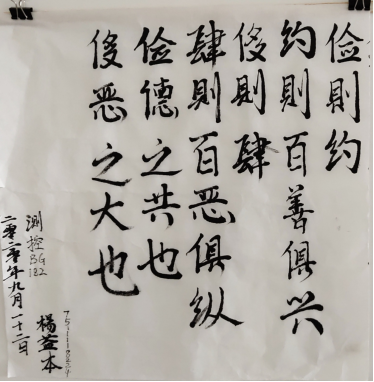 俭則约
约則百善俱兴
侈則肆
肆則百恶俱纵
俭德之共也
侈恶之大也
测控BG182
二零二零年九月十二日
楊益本